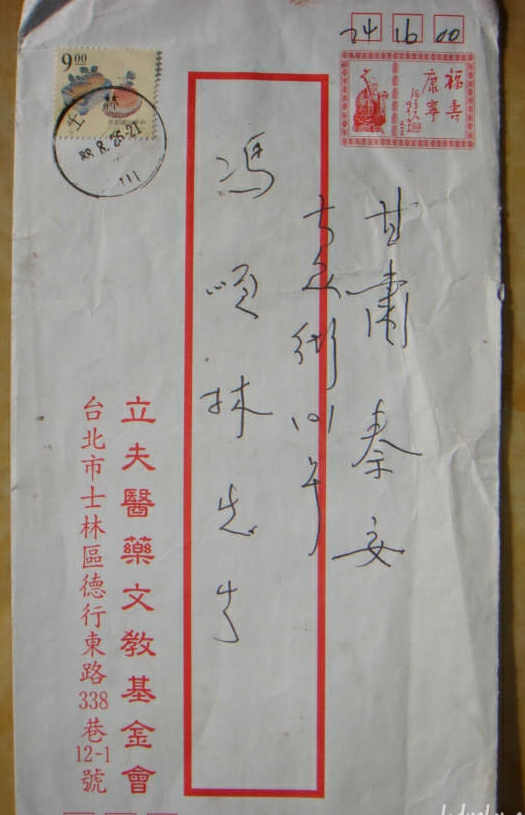 74 16 00
9.00
士林
111
福壽
康寧
甘肅 秦安
馮順林先生
立夫醫藥文教基金會
台北市士林區德行東路338巷12-1號